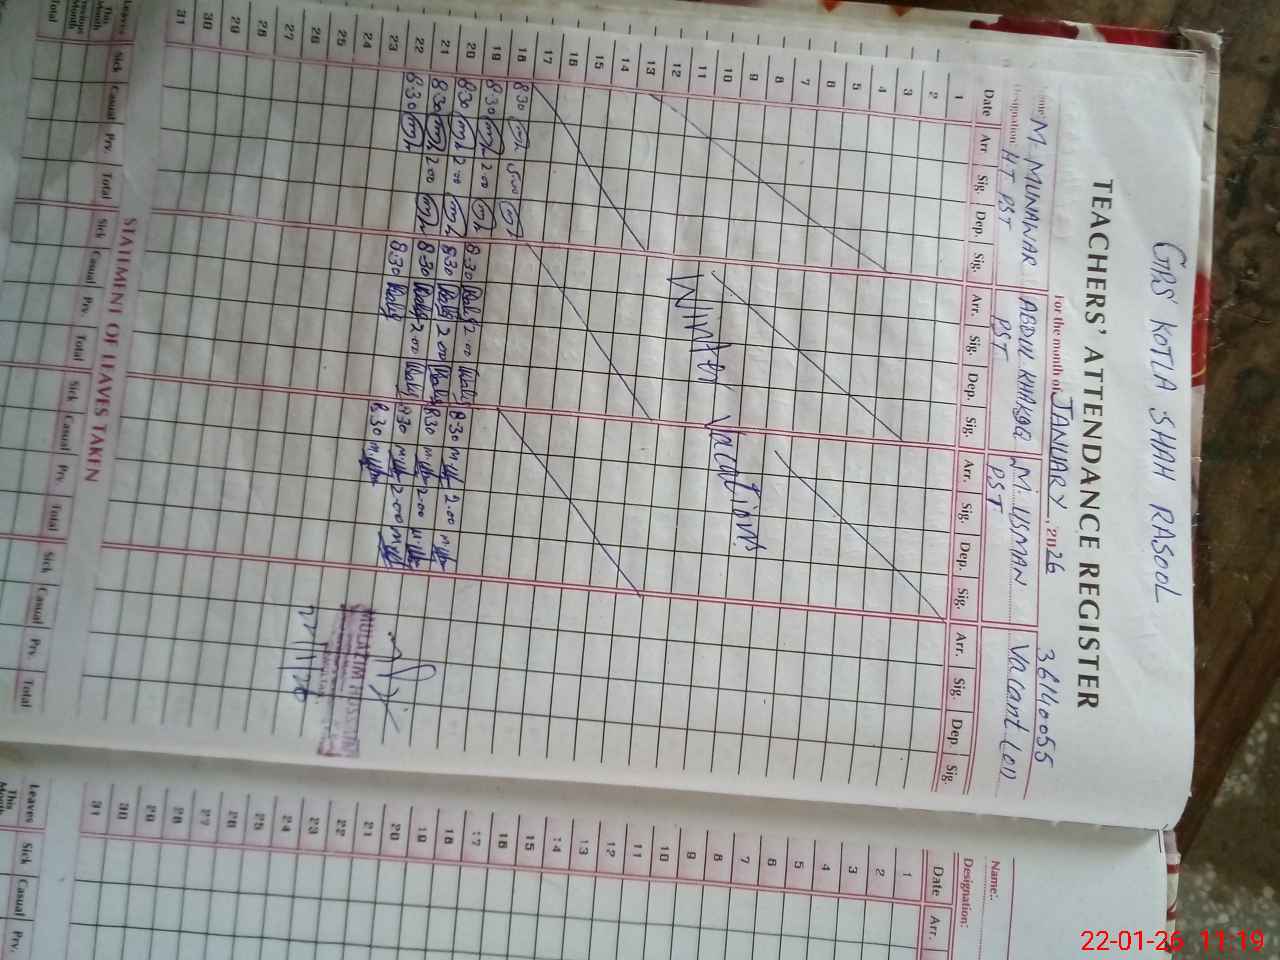 GPS KOTLA SHAH RASOOL
36140055
TEACHERS' ATTENDANCE REGISTER
For the month of JANUARY, 2026
Name: M. MUNAWAR ABDUL KHALIQ M. USMAN Vacant (01)
Designation: HT PST PST PST
Date Arr Sig. Dep. Sig. Arr. Sig. Dep. Sig. Arr. Sig. Dep. Sig. Arr. Sig. Dep. Sig.
1
2
3
4
5
6
7
8
9
10
11
12
13
14
15
16
17
Winter Vacations
18 8:30 2:00 8:30 2:00 8:30 2.00
19 8:30 2:00 8:30 2:00 8:30 2.00
20 8:30 2:00 8:30 2:00 8:30 2.00
21 8:30 2:00 8:30
22 8:30 8:30
23
24
25
26
27
28
29
30
31
MULAZIM HUSSAIN
22/1/26
STATMENT OF LEAVES TAKEN
Leaves Sick Casual Prv. Total Sick Casual Prv. Total Sick Casual Prv. Total Sick Casual Prv. Total
This Month
Previous Month
Total
Name:
Designation:
Date Arr.
1
2
3
4
5
6
7
8
9
10
11
12
13
14
15
16
17
18
19
20
21
22
23
24
25
26
27
28
29
30
31
Leaves Sick Casual Prv.
This Month
22-01-26 11:19